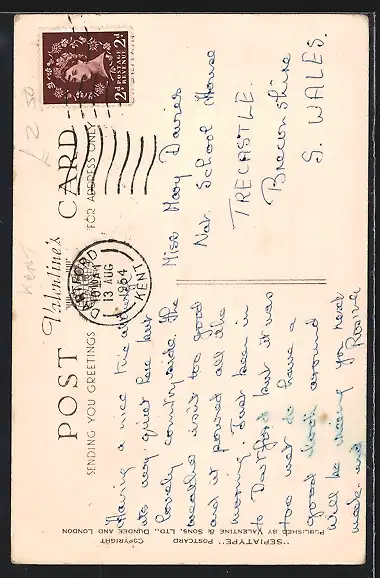 Valentine's
POST CARD
SENDING YOU GREETINGS
FOR ADDRESS ONLY
POSTAGE REVENUE
2D 2D
DARTFORD
13 AUG
1954
KENT
£2.50
KENT
Having a nice time although
its very quiet here but
lovely countryside. The
weather isn't too good
and it poured all the
morning. Just been in
to Dartford but it was
too wet to have a
good look around
Will be seeing you next
week-end
Miss Mary Davies
Nat. School House
TRECASTLE.
Breconshire
S. WALES.
"SEPIATYPE" POSTCARD COPYRIGHT
PUBLISHED BY VALENTINE & SONS, LTD., DUNDEE AND LONDON